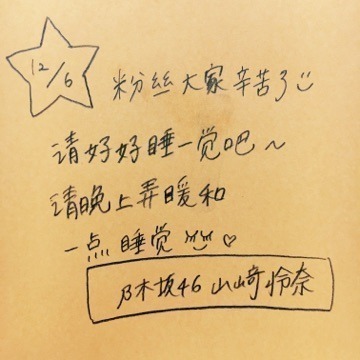 12/6
粉丝大家辛苦了
请好好睡一觉吧~
请晚上弄暖和
一点睡觉
乃木坂46 山崎怜奈